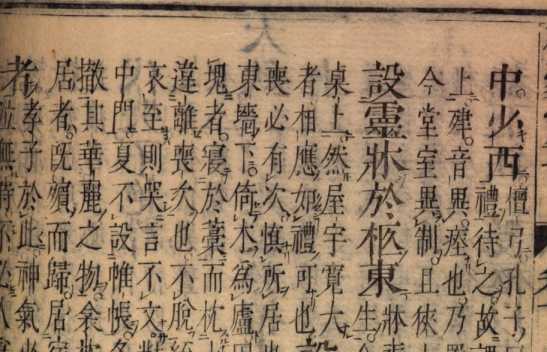 中少西
檀弓孔子
禮待之故
上殔音異瘞也乃
今堂室異制且俠
設靈牀於柩東
牀
生
桌上然屋宇寬大
者相應如禮可也
喪必有次慎所居也
東墻下倚木為廬
塊者寢於藁而枕
違離喪次也不脫絰
哀至則哭言不文
中門夏不設帷帳
撤其華麗之物余
居者旣殯而歸居宿
者
孝子於此神氣
竝無待不必